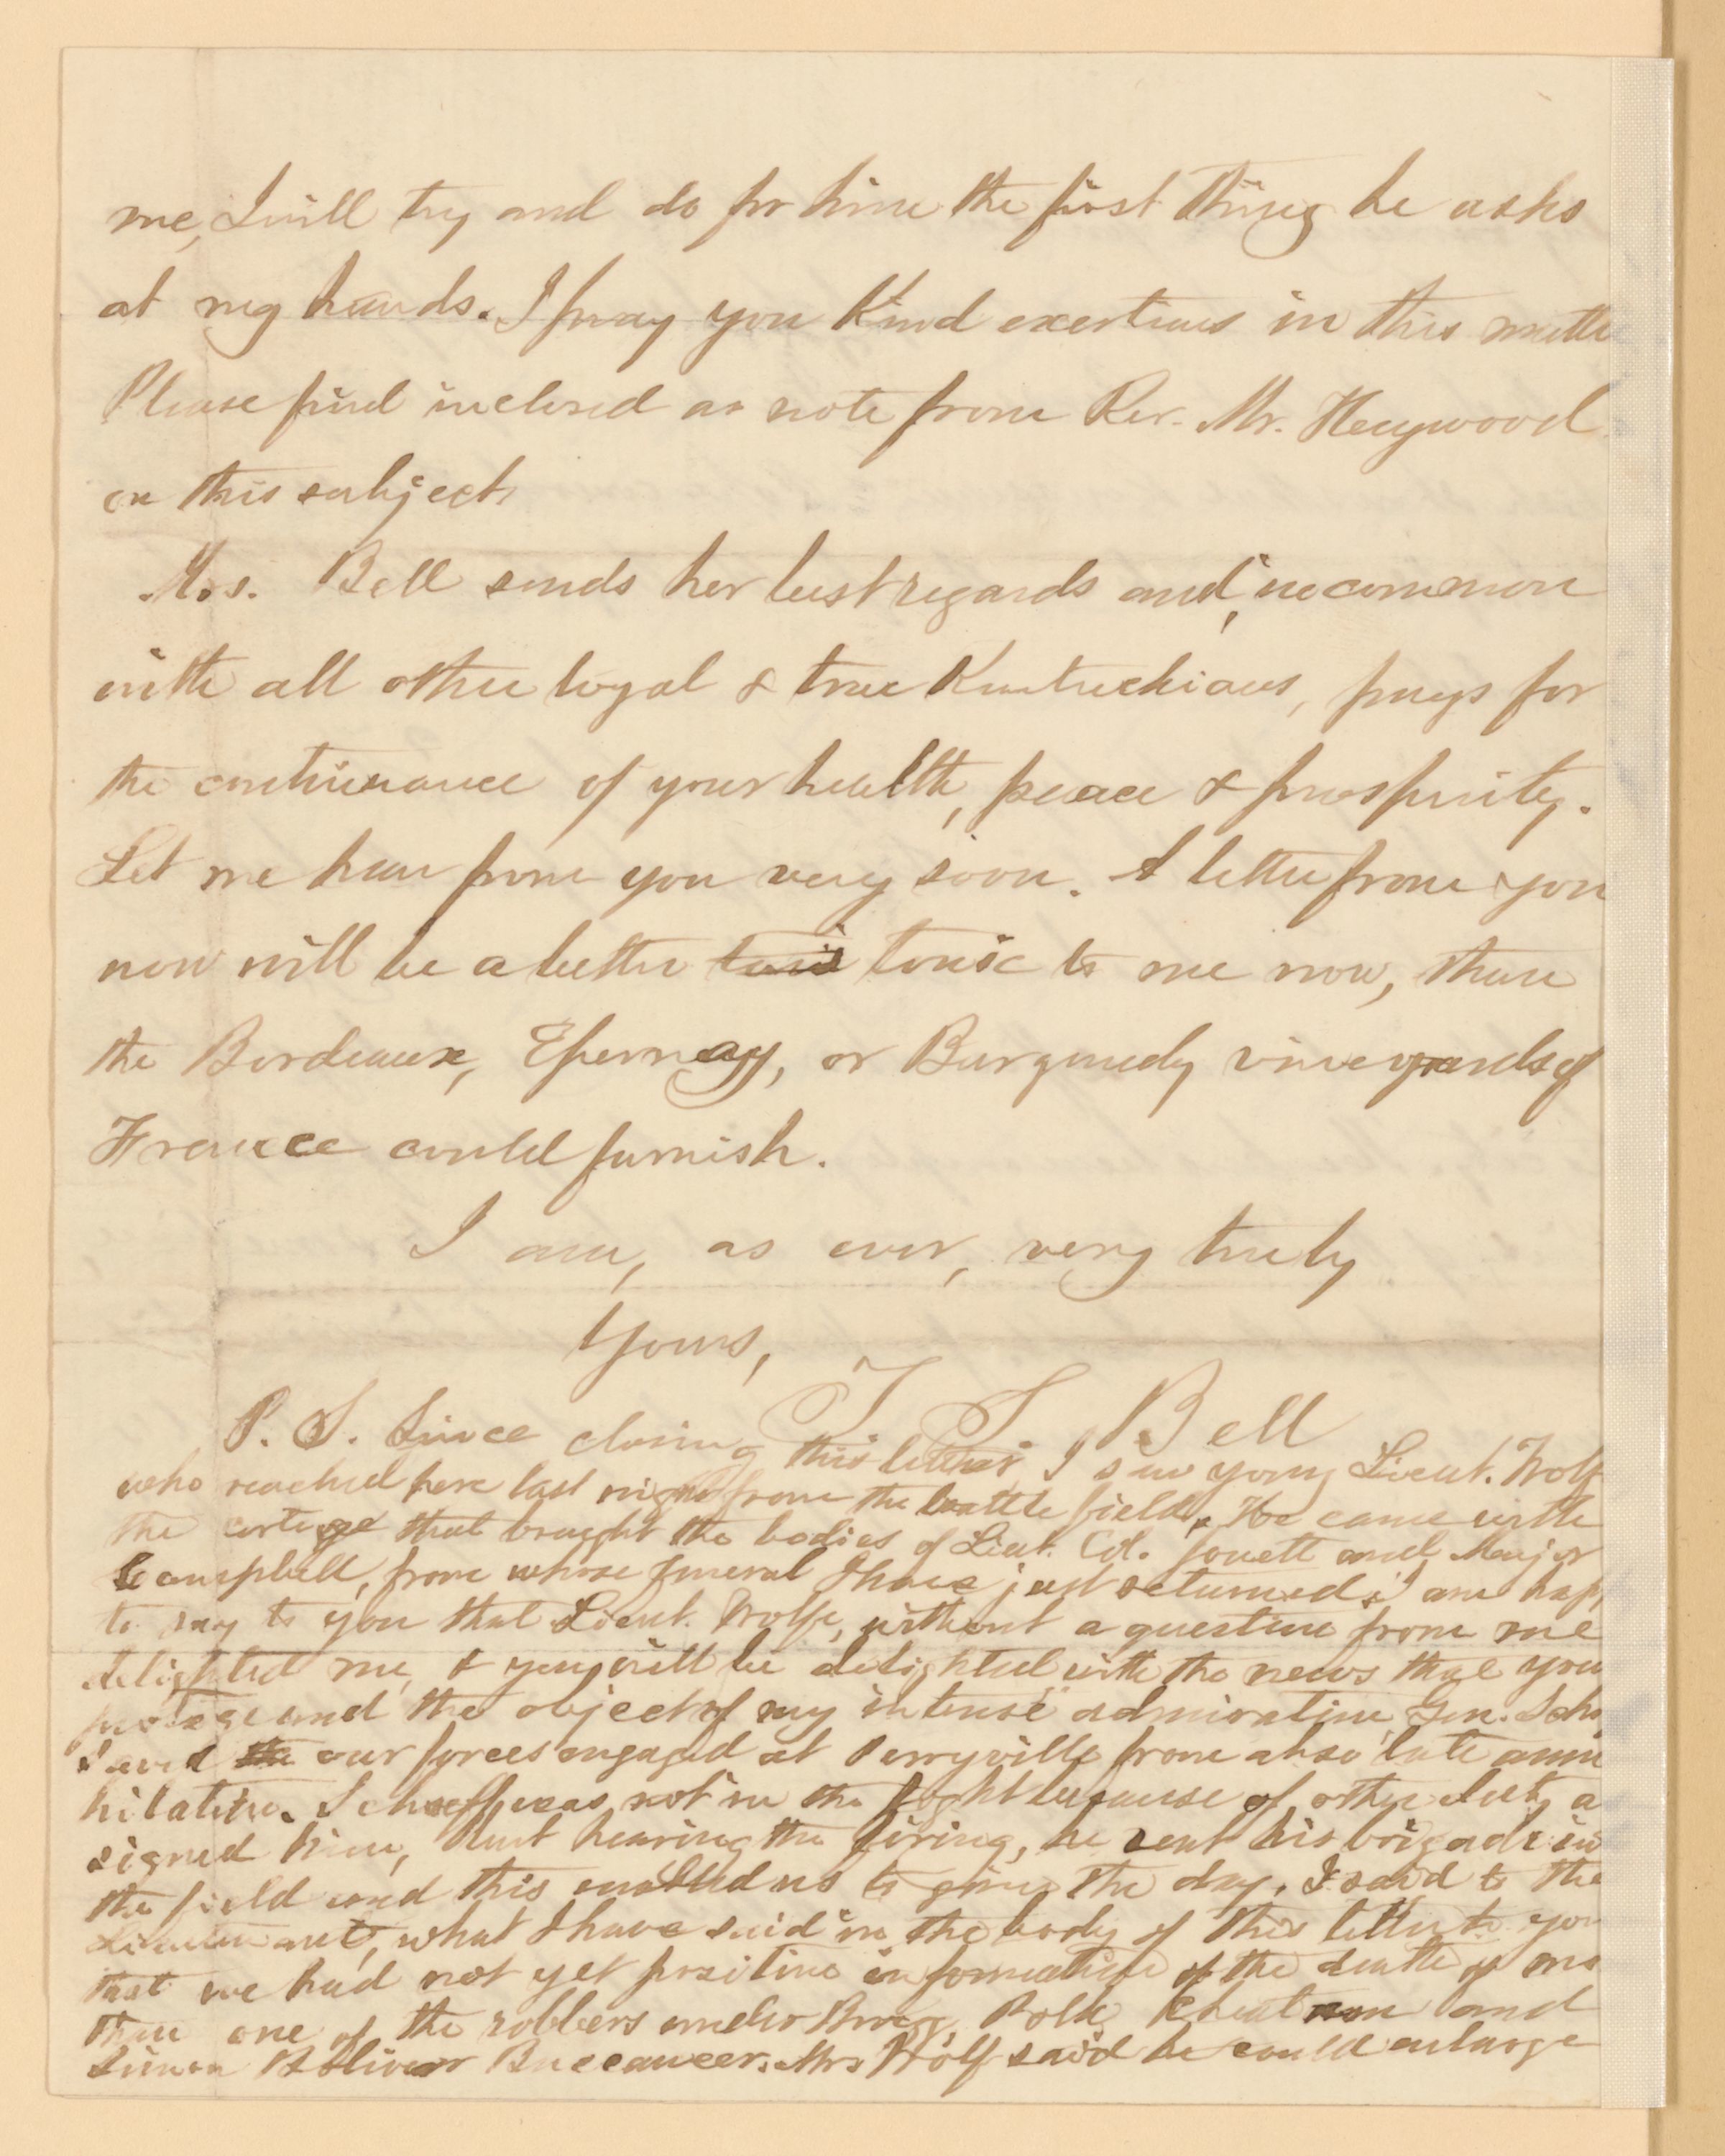 me, I will try and do for him the first thing he asks
at my hands. I pray you kind exertions in this matte
Please find inclosed a note from Rev. Mr. Heywood
on this subject.
Mrs. Bell sends her best regards and, in common
with all other loyal & true Kentuckians, prays for
the continuance of your health, peace & prosperity.
Let me hear from you very soon. A letter from you
now will be a better tonic to me now, than
the Bordeaux, Epernay, or Burgundy vineyards of
France could furnish.
I am, as ever, very truly
Yours,
T. S. Bell
P. S. Since closing this letter, I saw young Lieut. Wolf
who reached here last night from the battle field. He came with
the cortege that brought the bodies of Lieut. Col. Jouett and Major
Campbell, from whose funeral I have just returned. I am hap
to say to you that Lieut. Wolfe, without a question from me
delighted me, & you will be delighted with the news that you
protege and the object of my intense admiration, Gen. Scho
saved our forces engaged at Perryville from absolute anni
hilation. Schoeff was not in the fight because of other duty as
signed him, but hearing the firing, he sent his brigade in
the field and this enabled us to gain the day. I said to the
Lieutenant, what I have said in the body of this letter to you
that we had not yet positive information of the death of mo
than one of the robbers under Bragg, Polk, Cheatham and
Simon Bolivar Buccaneer. Mr. Wolf said he could enlarge